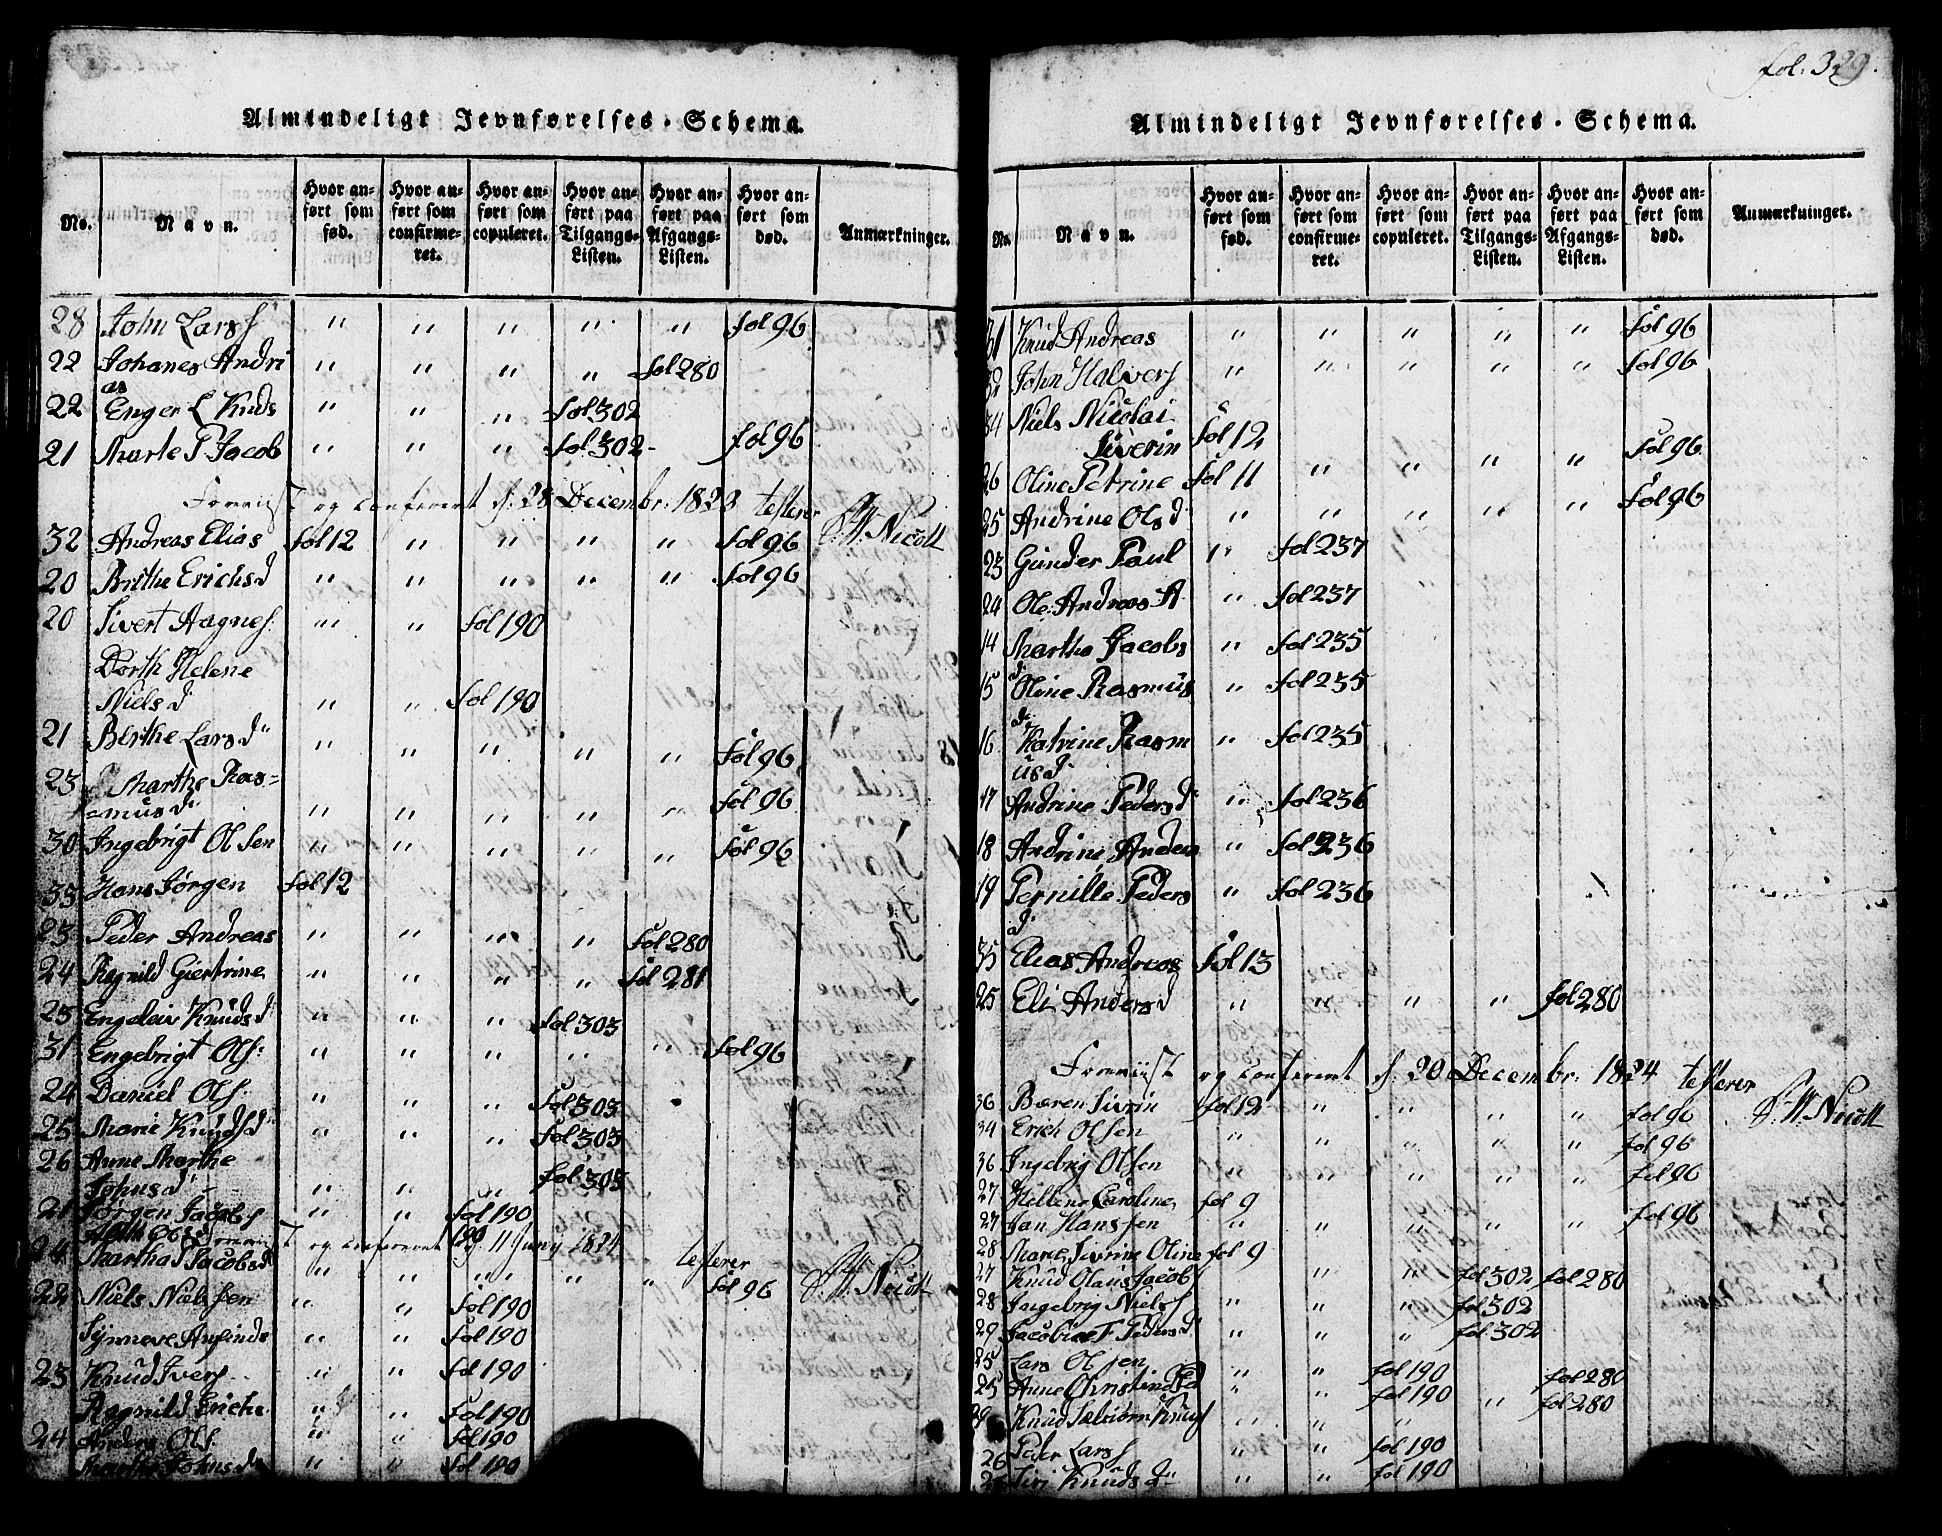 Almindeligt Jevnførelses-Schema.
No.
Navn.
Hvor anført som fød.
Hvor anført som confirmeret.
Hvor anført som copuleret.
Hvor anført paa Tilgangs-Listen.
Hvor anført paa Afgangs-Listen.
Hvor anført som død.
Anmærkninger.
28 John Larss " " " " " fol 96
22 Johanes Andri " " " " fol 280
as
22 Enger L Knuds " " " fol 302
21 Marte P Jacob " " " fol 302 - fol 96
og confereret d: 28 Decembr: 1823 testerer
32 Andreas Elias fol 12 " " " " fol 96 S. W. Nicoll
20 Brithe Erichsd " " " " " fol 96
20 Sivert Aagnes " " fol 190
Dorth Helene
Nielsd " " fol 190
21 Berthe Larsd " " " " " fol 96
23 Marthe Ras=
=musd " " " " " fol 96
30 Ingebrigt Olsen " " " " " fol 96
33 Hans Jørgen fol 12
23 Peder Andreas " " " " fol 280
24 Ragnild Giertrine " " " " fol 281
23 Engeleiv Knudsd " " " fol 303
31 Engebrigt Ols: " " " " " fol 96
24 Daniel Ols: " " " fol 303
25 Marie Knudsd " " " fol 303
26 Anne Marthe
Johnsd " " " fol 303
21 Jørgen Jacobs " " fol 190
og confereret d. 11 Juny 1824 testerer
24 Martha Jacobsd " " " " " fol 96 S. W. Nicoll
22 Niels Nielssen " " fol 190
Synneve Amunds " " fol 190
23 Knud Ivers " " fol 190
Ragnild Erichs " " fol 190
24 Anders Ols: " " fol 190
Marthe Johnsd " " fol 190
fol: 329.
Almindeligt Jevnførelses-Schema.
No.
Navn.
Hvor anført som fød.
Hvor anført som confirmeret.
Hvor anført som copuleret.
Hvor anført paa Tilgangs-Listen.
Hvor anført paa Afgangs-Listen.
Hvor anført som død.
Anmærkninger.
31 Knud Andreas " " " " " fol 96
32 John Halvers " " " " " fol 96
34 Niels Nicolai
Siverin fol 12
26 Oline Petrine fol 11 " " " " fol 96
25 Andrine Olsd " " " " " fol 96
23 Gunder Paul " fol 237
24 Ole Andreas A " fol 237
14 Martha Jacobs " fol 235
d
15 Oline Rasmus " fol 235
d
16 Katrine Rasm " fol 235
usd
17 Andrine Pedersd " fol 236
18 Andrine Anders " fol 236
19 Pernille Peders " fol 236
d
35 Elias Andreas fol 13
25 Eli Andersd " " " " fol 280
og confereret d: 20 Decembr: 1824 testerer
36 Bæren Sivrin fol 12 " " " " fol 96 S. W. Nicoll
34 Erich Olsen " " " " " fol 96
36 Ingebrig Olsen " " " " " fol 96
27 Hellene Caroline fol 9
27 Jan Hanssen " " " " " fol 96
28 Maren Sivrine Oline fol 9
27 Knud Olaus Jacob " " fol 302 fol 280
28 Ingebrig Niels " " " fol 302
29 Jacobine F Pedersd " " " fol 302
25 Lars Olsen " " fol 190 fol 280
25 Anne Christine Ped " " fol 190 " fol 280
" " "
26 Peder Larss " " fol 190
Siri Knudsd " " fol 190